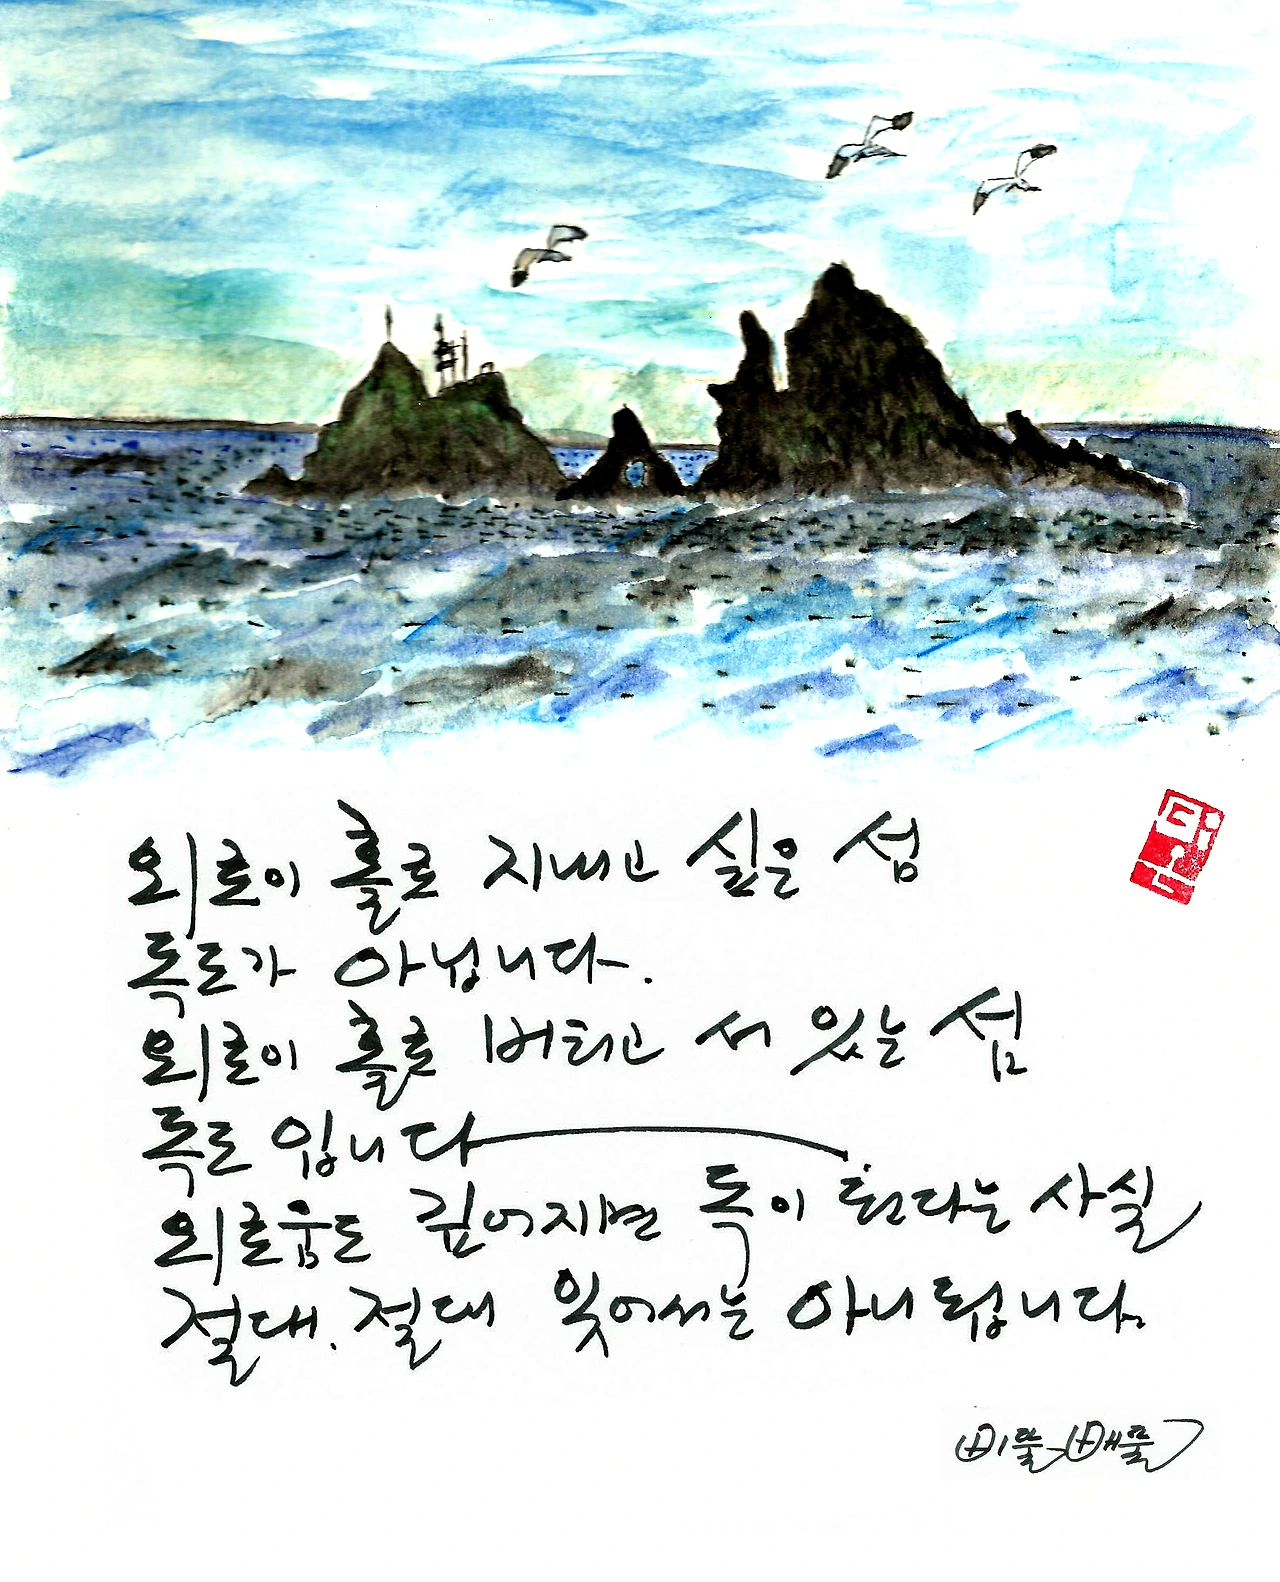 외로이 홀로 지내고 싶은 섬
독도가 아닙니다.
외로이 홀로 버티고 서 있는 섬
독도 입니다
외로움도 깊어지면 독이 된다는 사실
절대, 절대 잊어서는 아니 됩니다.
삐뚤빼뚤